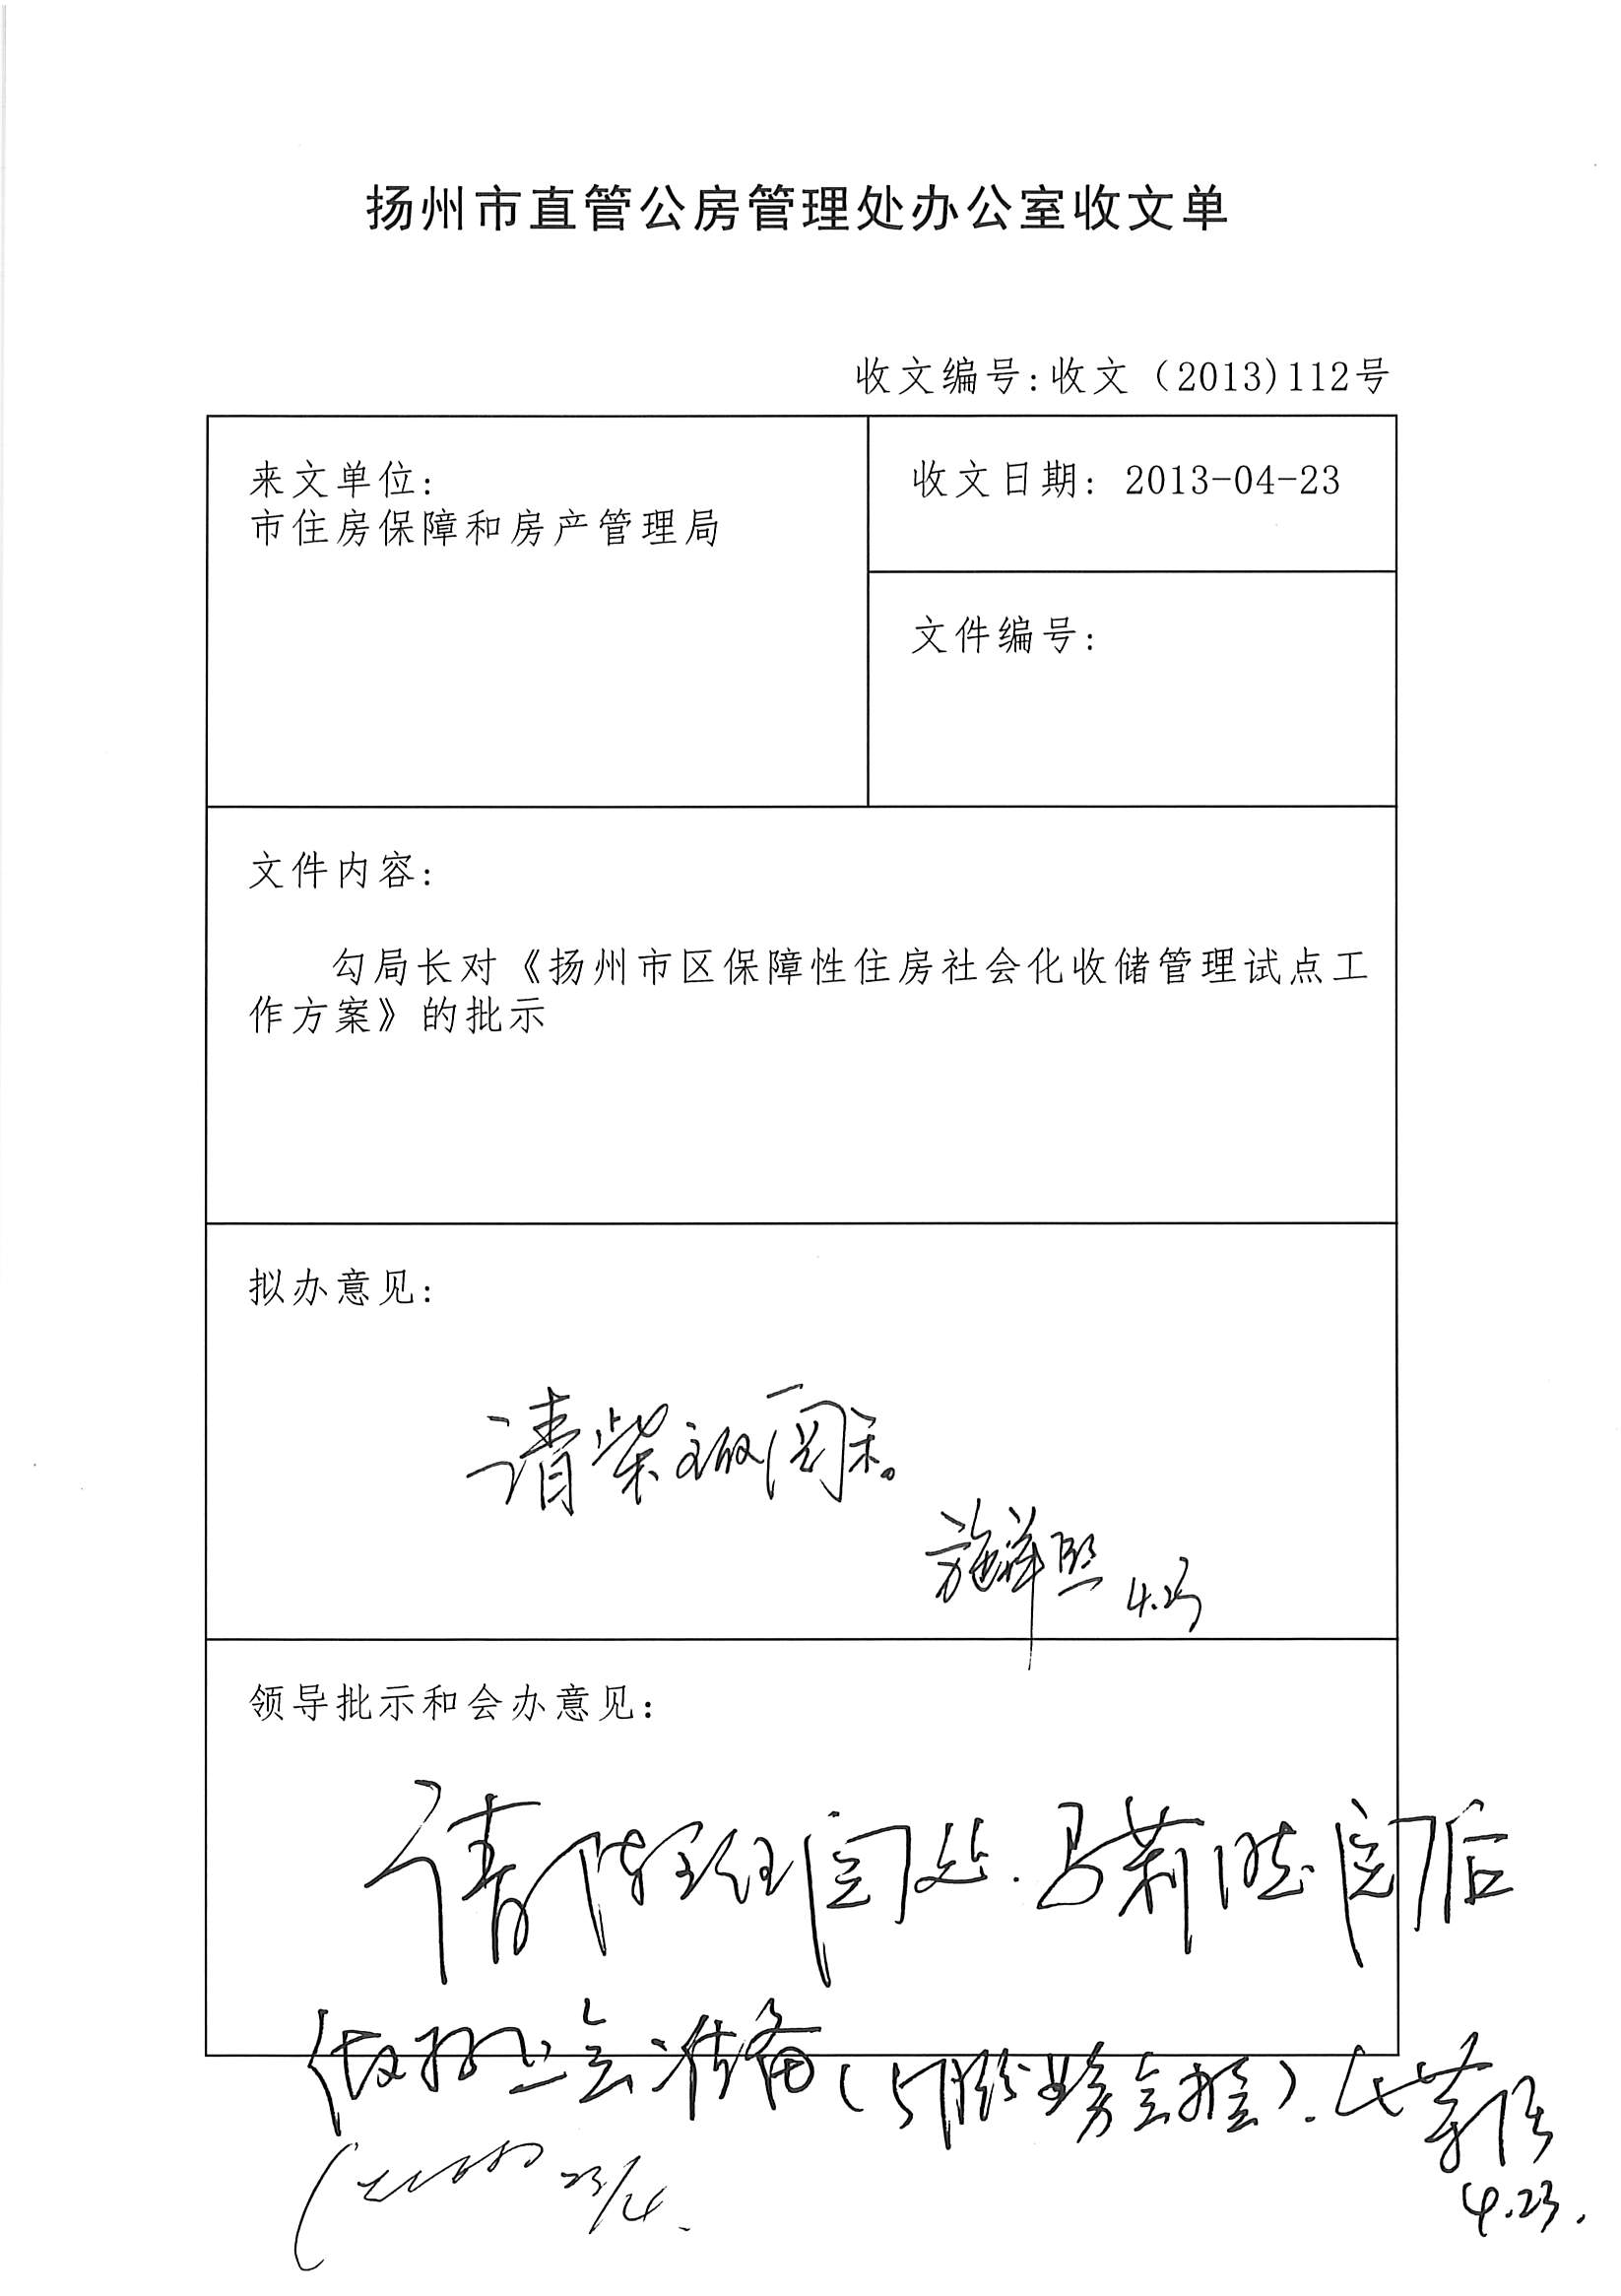 扬州市直管公房管理处办公室收文单
收文编号:收文（2013)112号
来文单位:
市住房保障和房产管理局
收文日期: 2013-04-23
文件编号:
文件内容:
勾局长对《扬州市区保障性住房社会化收储管理试点工
作方案》的批示
拟办意见:
请柴主阅示。
施祥熙 4.23
领导批示和会办意见:
请 主任阅处.马莉 阅后
做 会准备
23/4
4.23.